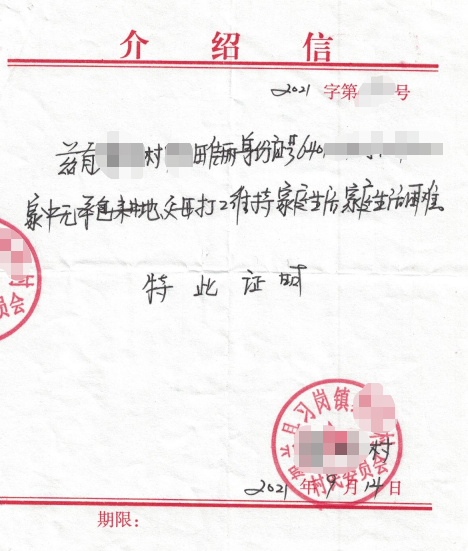 介绍信
2021 字第 号
兹有 村 身份证号640
家中无承包耕地,父母打工维持家庭生活,家庭生活困难
特此证明
员会
县习岗镇 村
村民委员会
村
2021年9月14日
期限: